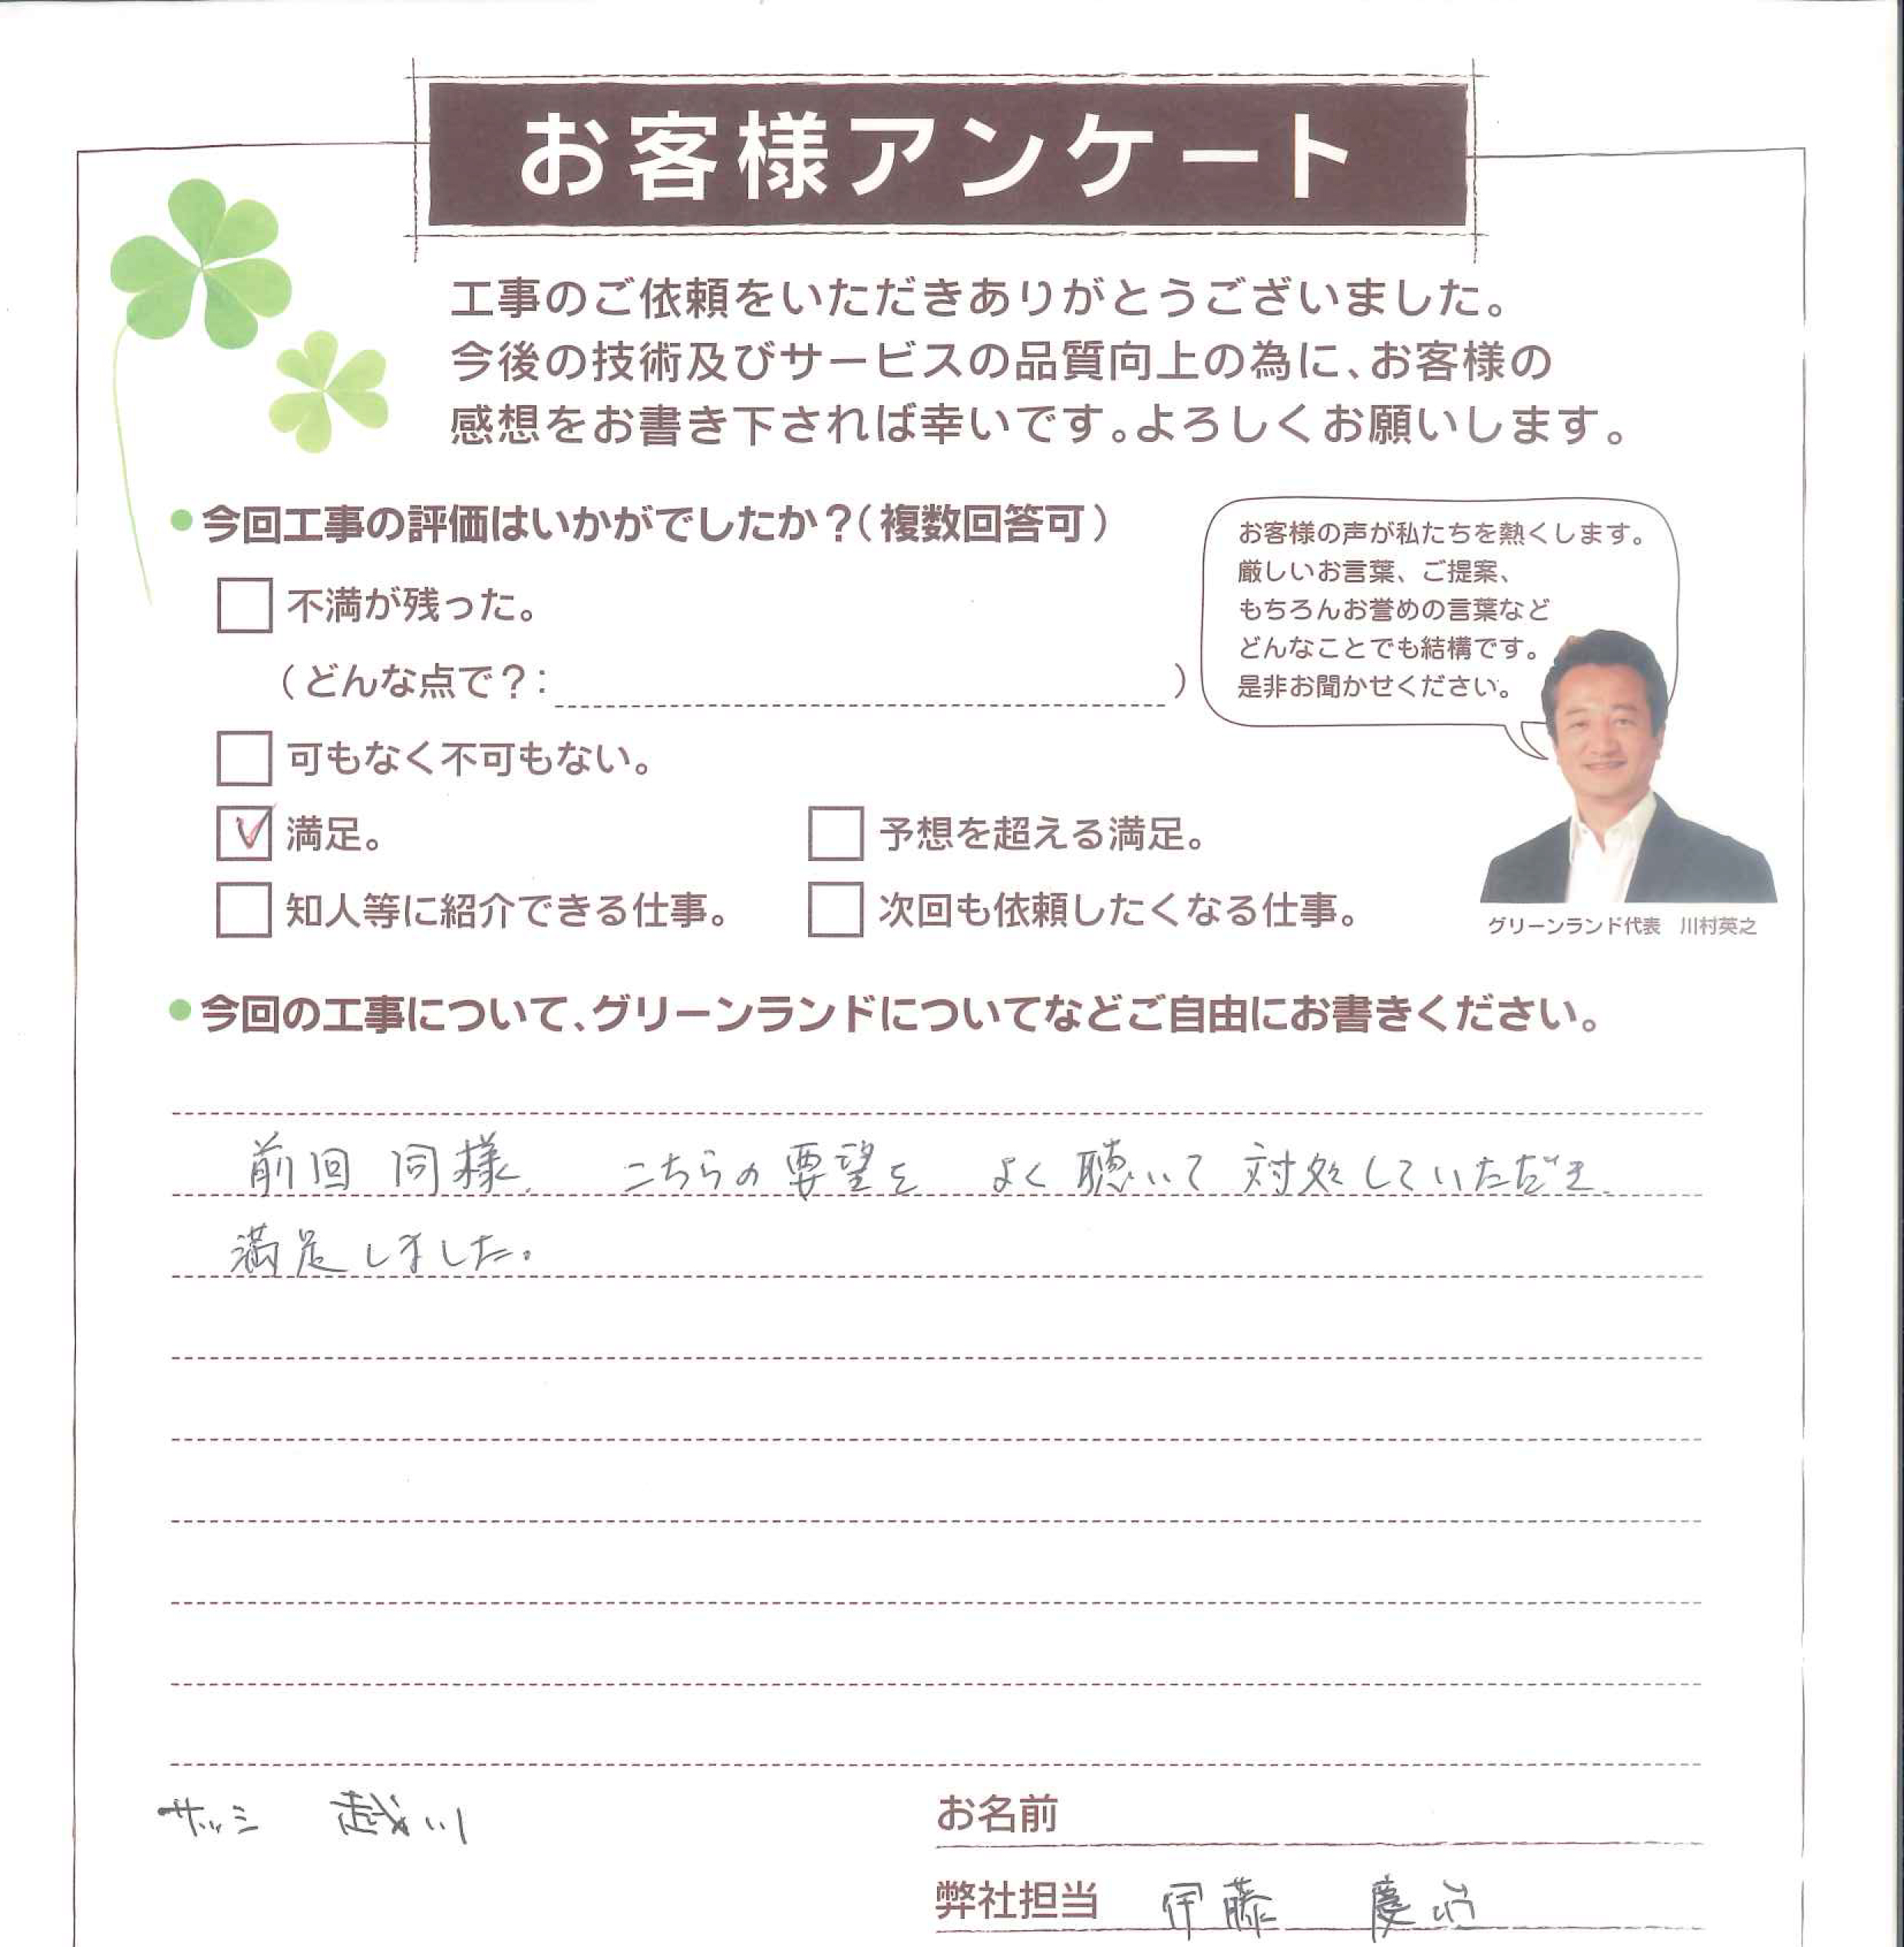 お客様アンケート
工事のご依頼をいただきありがとうございました。
今後の技術及びサービスの品質向上の為に、お客様の
感想をお書き下されば幸いです。よろしくお願いします。
●今回工事の評価はいかがでしたか？（複数回答可）
不満が残った。
（どんな点で？：　）
可もなく不可もない。
満足。
予想を超える満足。
知人等に紹介できる仕事。
次回も依頼したくなる仕事。
お客様の声が私たちを熱くします。
厳しいお言葉、ご提案、
もちろんお誉めの言葉など
どんなことでも結構です。
是非お聞かせください。
グリーンランド代表　川村英之
●今回の工事について、グリーンランドについてなどご自由にお書きください。
前回同様、こちらの要望をよく聴いて対処していただき、
満足しました。
サッシ　越川
お名前
弊社担当　伊藤　慶